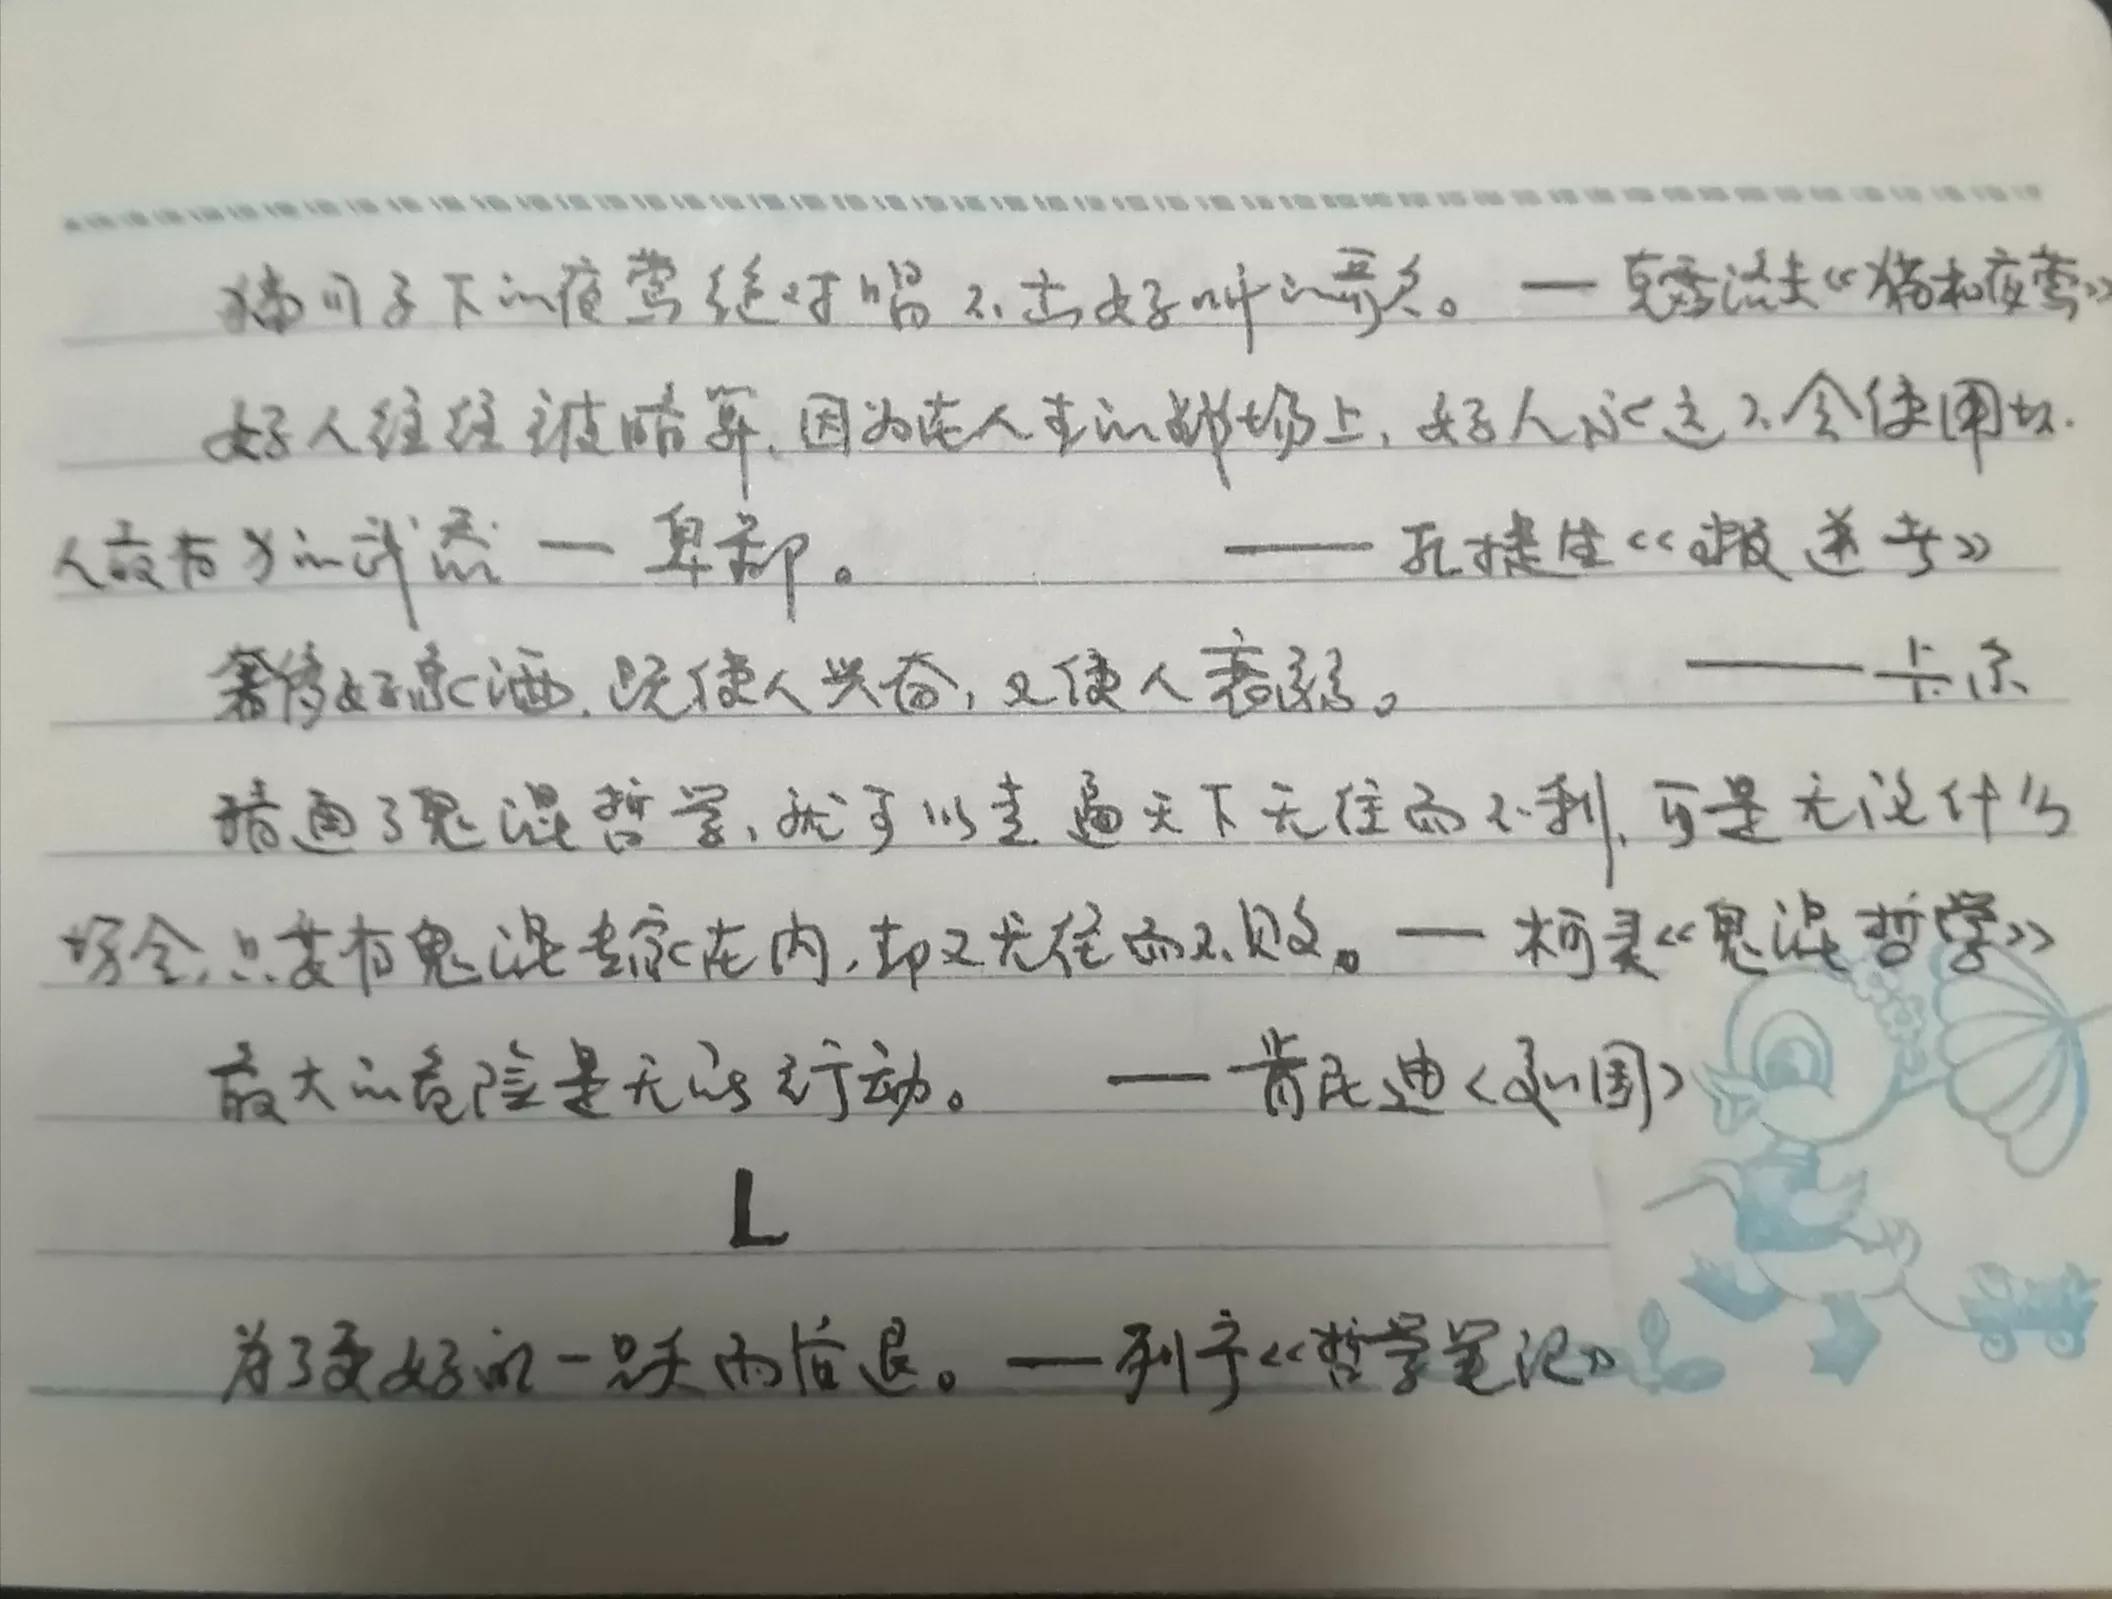 猫爪子下的夜莺绝对唱不出好听的歌。—克雷洛夫《猫和夜莺》
好人往往被暗算,因为在人生的战场上,好人永远不会使用坏
人最有力的武器—卑鄙。——孔捷生《叛逆者》
奢侈好像酒,既使人兴奋,又使人衰弱。——卡尔
精通了鬼混哲学,就可以走遍天下无往而不利,可是无论什么
场合,只要有鬼混专家在内,却又无往而不败。—柯灵《鬼混哲学》
最大的危险是无所行动。—肯尼迪
L
为了更好的一跃而后退。—列宁《哲学笔记》